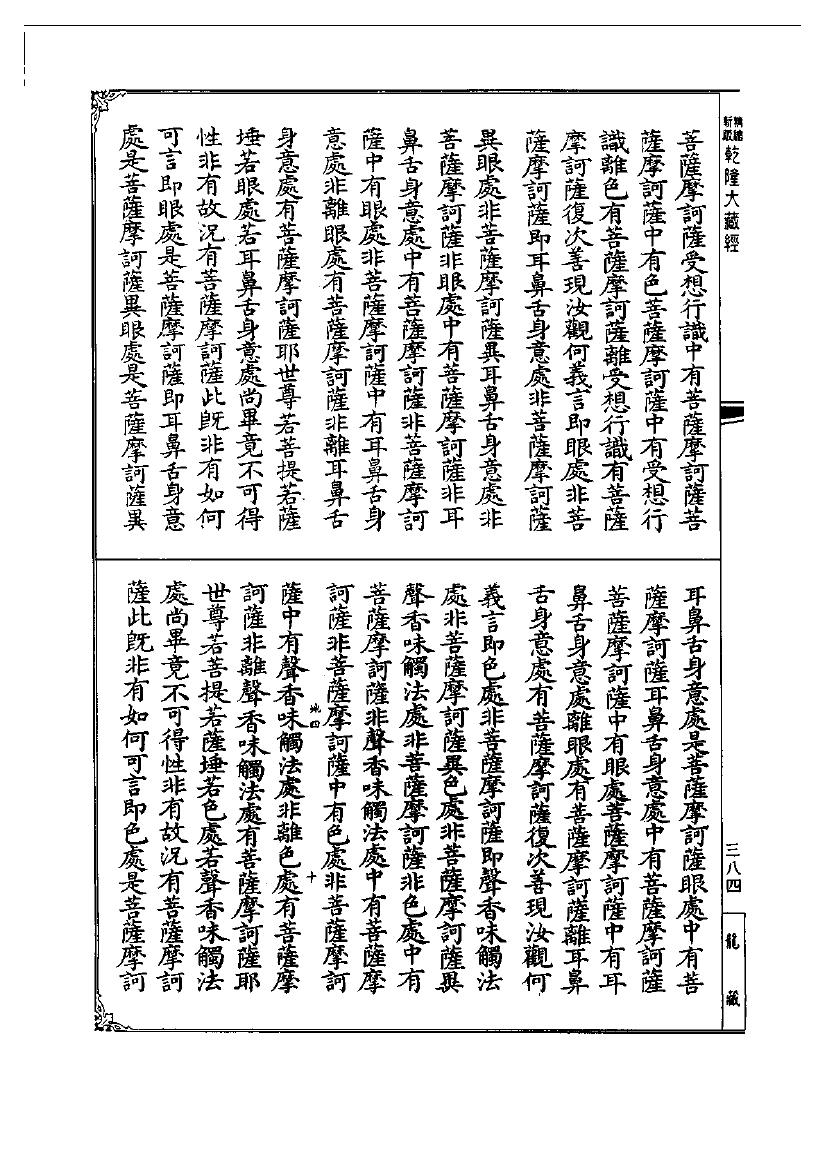 精縮
新版
乾隆大藏經
菩薩摩訶薩受想行識中有菩薩摩訶薩菩
薩摩訶薩中有色菩薩摩訶薩中有受想行
識離色有菩薩摩訶薩離受想行識有菩薩
摩訶薩復次善現汝觀何義言即眼處非菩
薩摩訶薩即耳鼻舌身意處非菩薩摩訶薩
異眼處非菩薩摩訶薩異耳鼻舌身意處非
菩薩摩訶薩非眼處中有菩薩摩訶薩非耳
鼻舌身意處中有菩薩摩訶薩非菩薩摩訶
薩中有眼處非菩薩摩訶薩中有耳鼻舌身
意處非離眼處有菩薩摩訶薩非離耳鼻舌
身意處有菩薩摩訶薩耶世尊若菩提若薩
埵若眼處若耳鼻舌身意處尚畢竟不可得
性非有故況有菩薩摩訶薩此既非有如何
可言即眼處是菩薩摩訶薩即耳鼻舌身意
處是菩薩摩訶薩異眼處是菩薩摩訶薩異
耳鼻舌身意處是菩薩摩訶薩眼處中有菩
薩摩訶薩耳鼻舌身意處中有菩薩摩訶薩
菩薩摩訶薩中有眼處菩薩摩訶薩中有耳
鼻舌身意處離眼處有菩薩摩訶薩離耳鼻
舌身意處有菩薩摩訶薩復次善現汝觀何
義言即色處非菩薩摩訶薩即聲香味觸法
處非菩薩摩訶薩異色處非菩薩摩訶薩異
聲香味觸法處非菩薩摩訶薩非色處中有
菩薩摩訶薩非聲香味觸法處中有菩薩摩
訶薩非菩薩摩訶薩中有色處非菩薩摩訶
地四
十
薩中有聲香味觸法處非離色處有菩薩摩
訶薩非離聲香味觸法處有菩薩摩訶薩耶
世尊若菩提若薩埵若色處若聲香味觸法
處尚畢竟不可得性非有故況有菩薩摩訶
薩此既非有如何可言即色處是菩薩摩訶
三八四
龍藏